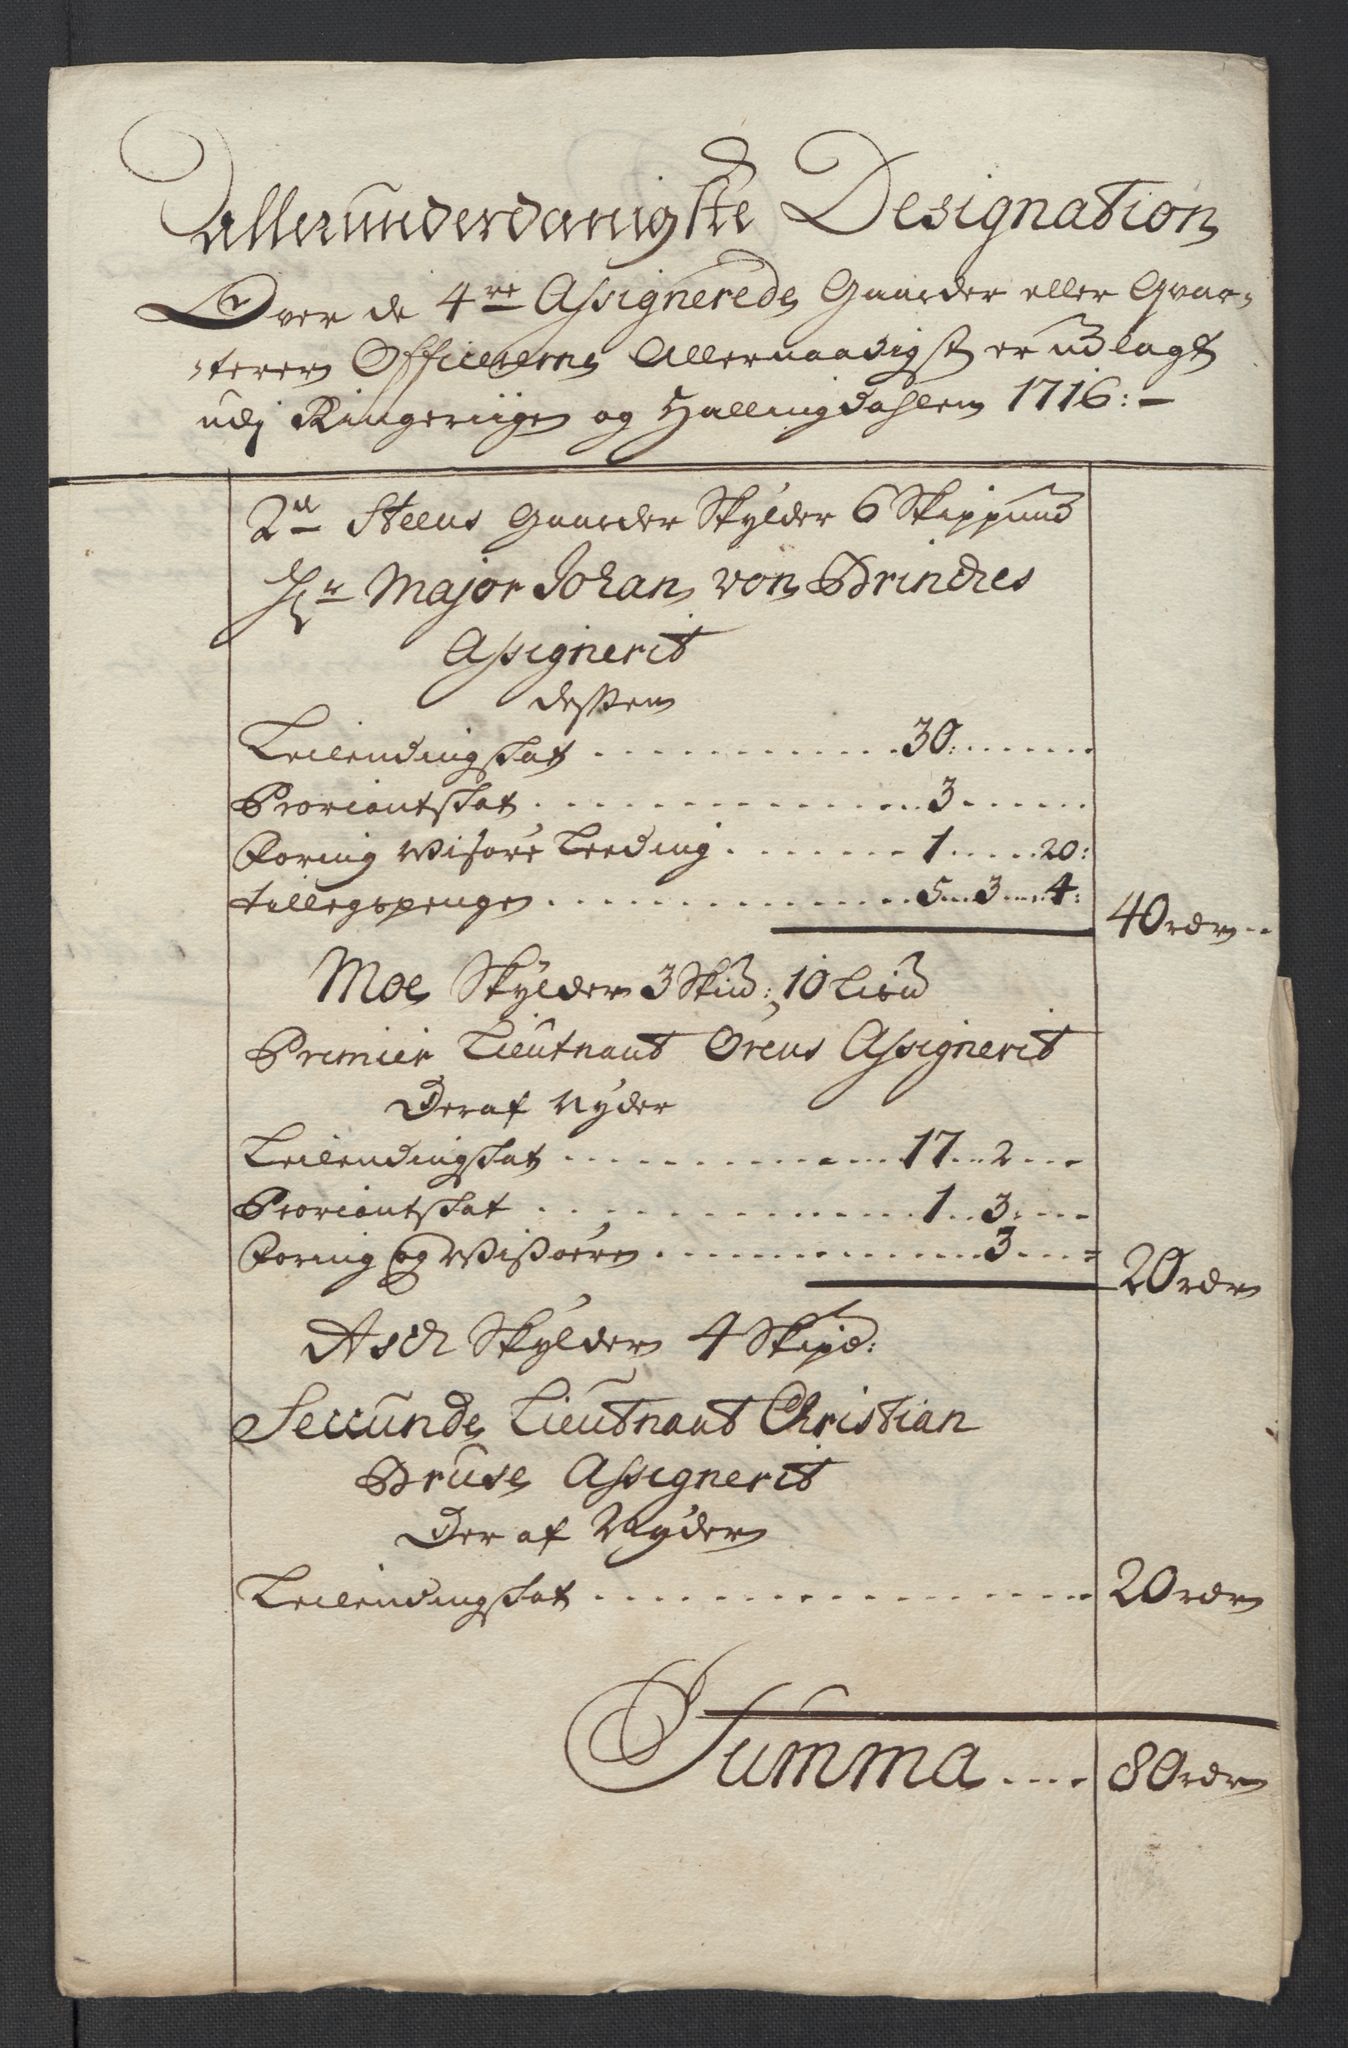 Allerunderdanigste Designation
Over de 4re Assignerede Gaarder eller Qvar-
-terer Officererne Allernaadigst er udlagt
udj Ringeriige og Hallingdahlen 1716:-
2de Steens gaarder Skylder 6 Skippund
Hr Major Johan von Brinches
Assignerit
dessen
Leilendingskat 30:
Proviantskat 3
Foring Wisøre Leeding 1 20:
tillegspenge 5 3 4: 40 rdr
Moe Skylder 3 Skud: 10 Lisd
Premier Lieutnant Grens Assignerit
Deraf Nyder
Leilendingskat 17 2
Proviantskat 1 3:
Foring og Wisøere 3 20 rdr
Asch Skylder 4 Skipd:
Secunde Lieutnant Christian
Bruse Assignerit
Der af Nyder
Leilendingskat 20 rdr
Summa 80 rdr